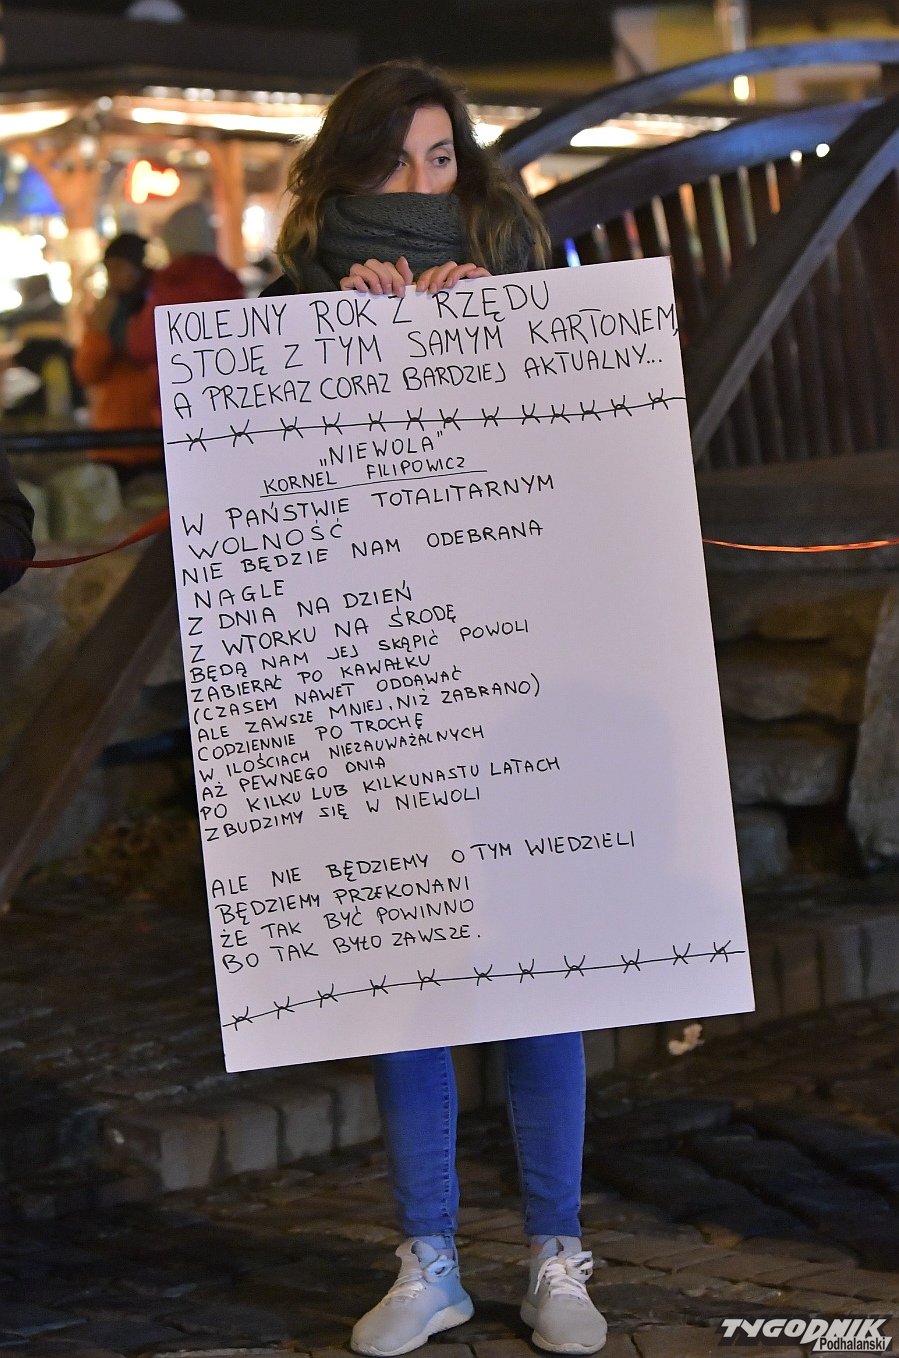 KOLEJNY ROK Z RZĘDU
STOJĘ Z TYM SAMYM KARTONEM,
A PRZEKAZ CORAZ BARDZIEJ AKTUALNY...
„NIEWOLA"
KORNEL FILIPOWICZ
W PAŃSTWIE TOTALITARNYM
WOLNOŚĆ
NIE BĘDZIE NAM ODEBRANA
NAGLE
Z DNIA NA DZIEŃ
Z WTORKU NA ŚRODĘ
BĘDĄ NAM JEJ SKĄPIĆ POWOLI
ZABIERAĆ PO KAWAŁKU
(CZASEM NAWET ODDAWAĆ
ALE ZAWSZE MNIEJ, NIŻ ZABRANO)
CODZIENNIE PO TROCHĘ
W ILOŚCIACH NIEZAUWAŻALNYCH
AŻ PEWNEGO DNIA
PO KILKU LUB KILKUNASTU LATACH
ZBUDZIMY SIĘ W NIEWOLI
ALE NIE BĘDZIEMY O TYM WIEDZIELI
BĘDZIEMY PRZEKONANI
ŻE TAK BYĆ POWINNO
BO TAK BYŁO ZAWSZE.
TYGODNIK
Podhalański